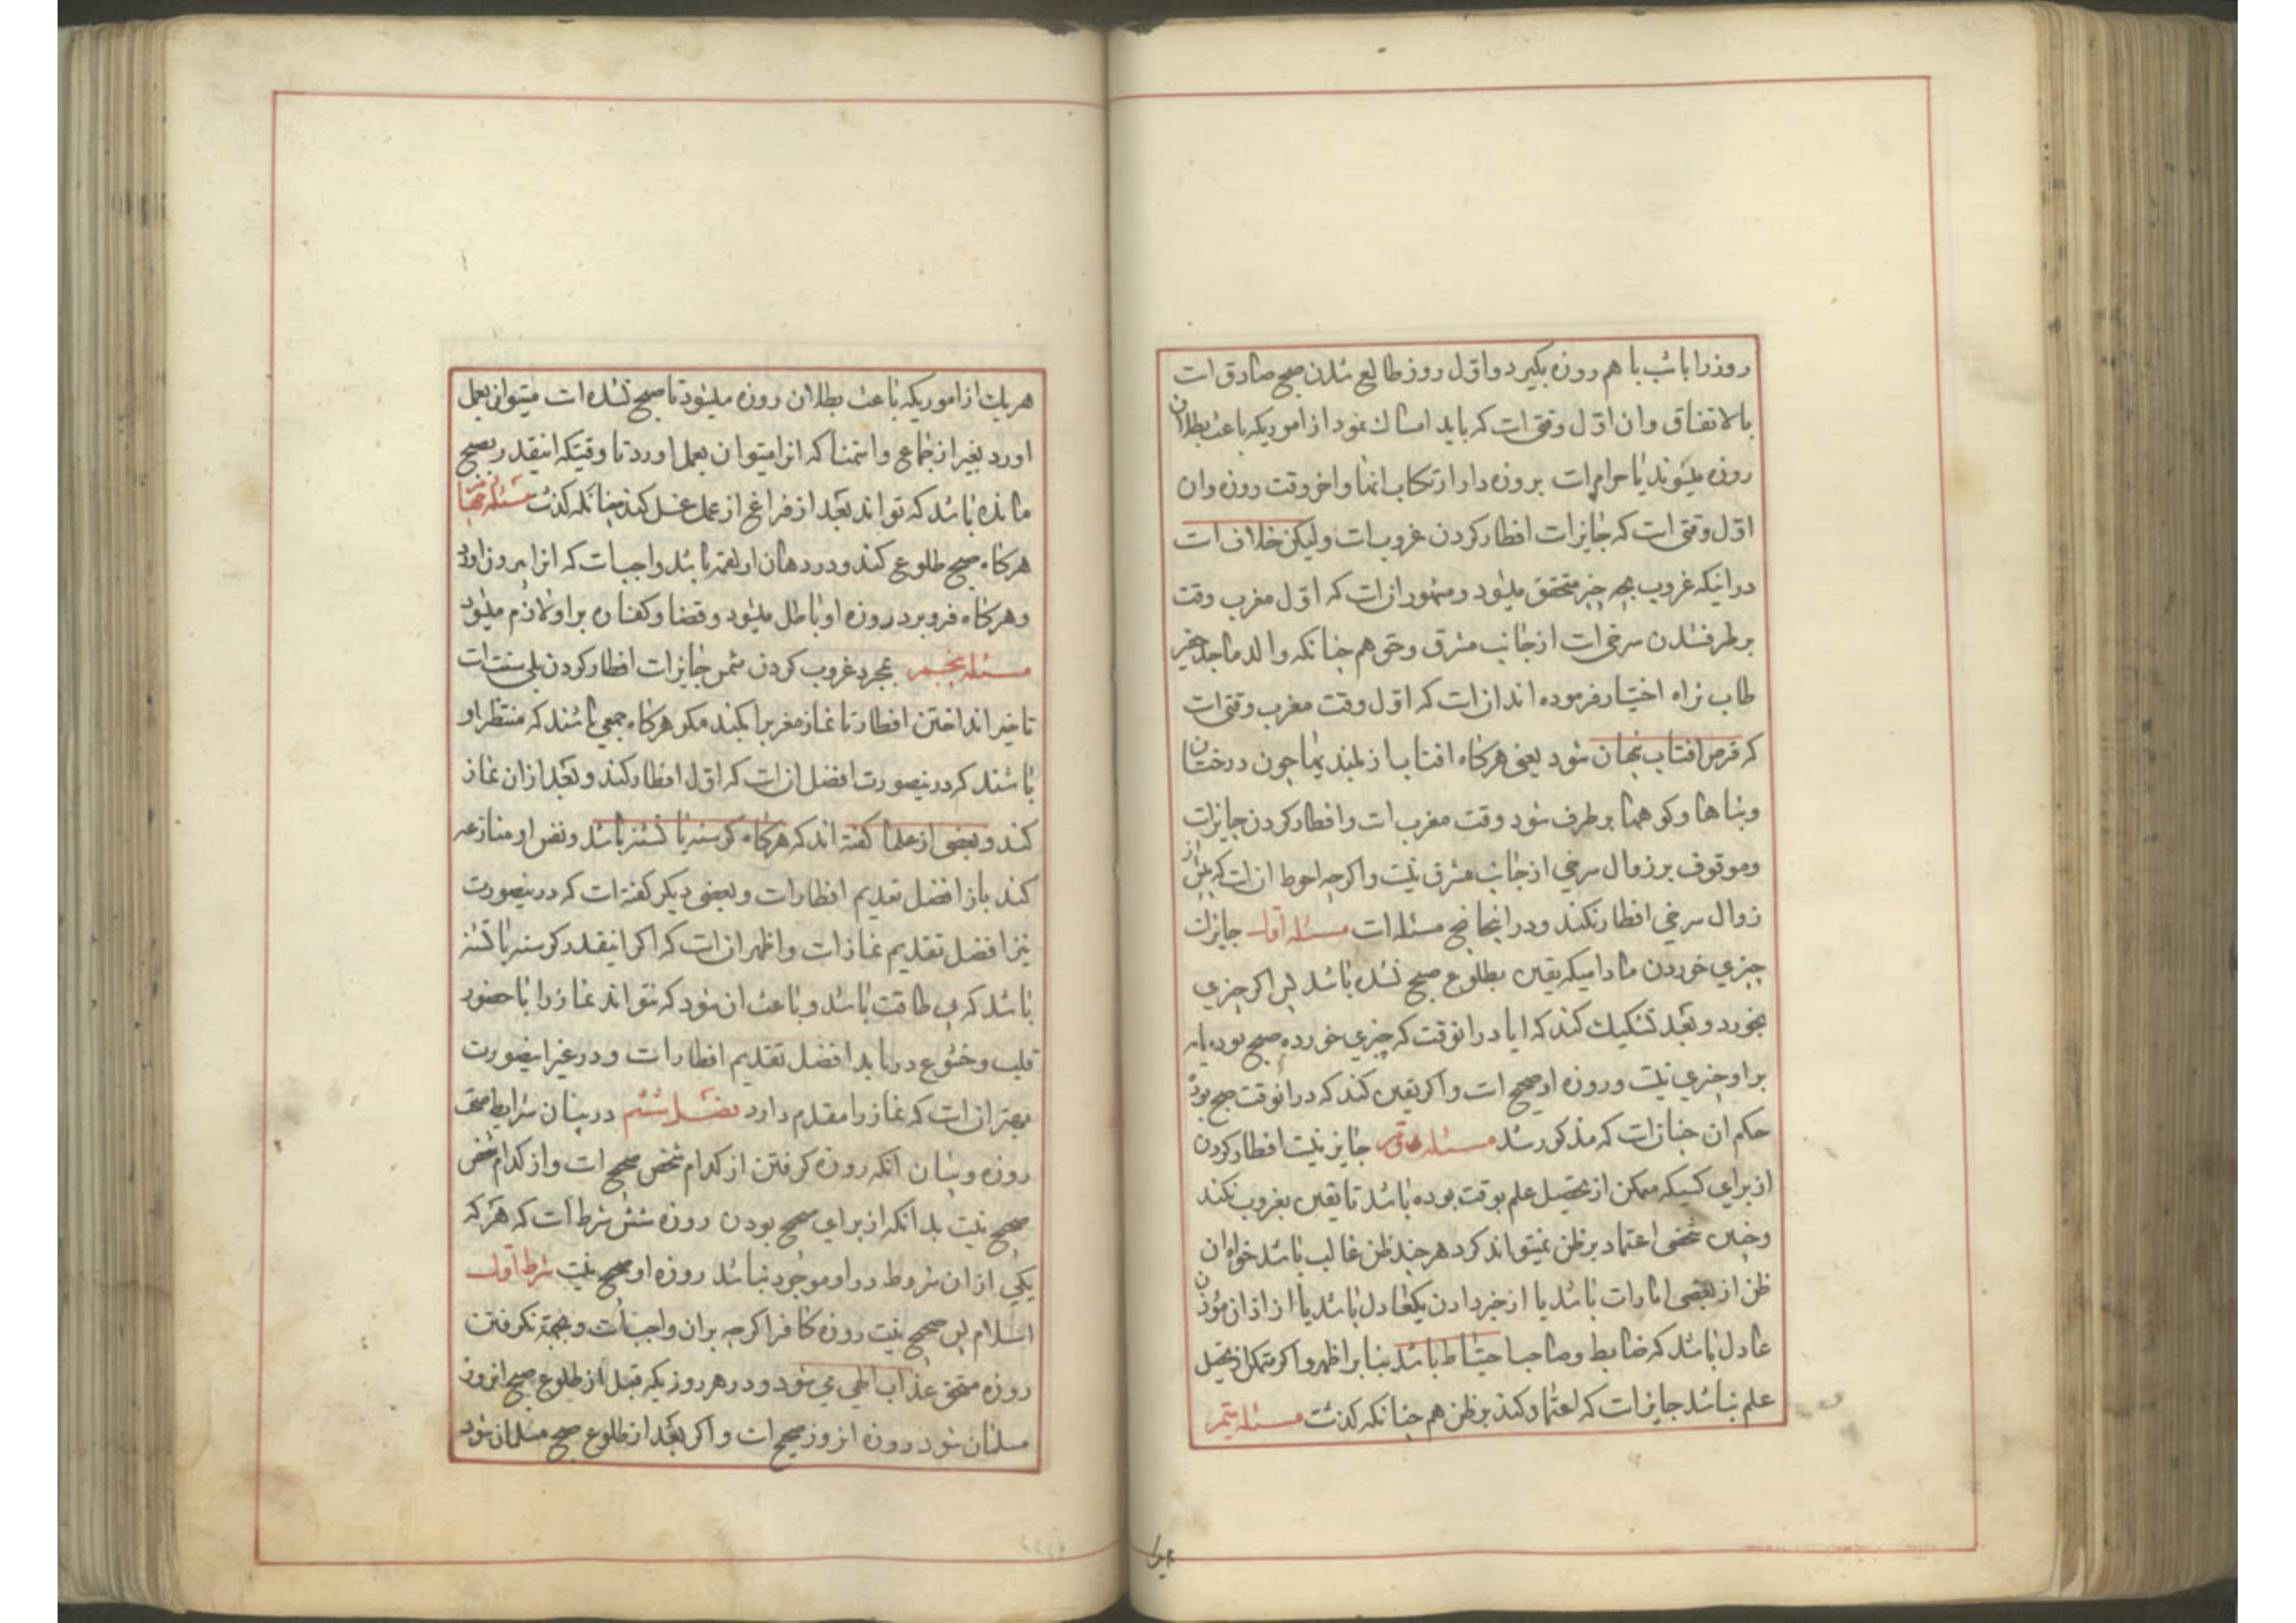 روزرا باشب با هم روزه بگیرد و اوّل روز طالع شدن صبح صادق است
بالاتفاق و ان اوّل وقتی است که باید امساك نمود از اموریکه باعث بطلان
روزه میشوند یا حرام است بر روزه دار ارتکاب انها و اخر وقت روزه و ان
اوّل وقتی است که جایز است افطار کردن غروبست و لیکن خلافست
در اینکه غروب بچه چیز متحقق میشود و مشهور انست که اوّل مغرب وقت
بر طرف شدن سرخی است از جانب مشرق و حق هم چنانکه والد ماجد حقیر
طاب ثراه اختیار فرموده اند انست که اوّل وقت مغرب وقتی است
که قرص افتاب پنهان شود یعنی هرکاه افتاب از بلندیها چون درختان
و بناها و کوهها بر طرف شود وقت مغرب است و افطار کردن جایز است
و موقوف بر زوال سرخی از جانب مشرق نیست و اکرچه احوط انست که پیش از
زوال سرخی افطار نکند و در اینجا پنج مسئله است مسئله اوّل جایز است
چیزی خوردن مادامیکه یقین بطلوع صبح نشده باشد پس اکر چیزی
بخورد و بعد تشکیك کند که ایا در انوقت که چیزی خورده صبح بوده یا نه
بر او چیزی نیست و روزه او صحیح است و اکر یقین کند که در انوقت صبح بوده
حکم ان چنانست که مذکور شد مسئله دوّم جایز نیست افطار کردن
از برای کسیکه ممکن از تحصیل علم بوقت بوده باشد تا یقین بغروب نکند
و چنین شخصی اعتماد بر ظن نمیتواند کرد هر چند ظن غالب باشد خواه ان
ظن از بعضی امارات باشد یا از خبر دادن یکعادل باشد یا از اذان مؤذن
عادل باشد که ضابط و صاحب احتیاط باشد بنابر اظهر و اکر متمکن از تحصیل
علم نباشد جایز است که اعتماد کند بر ظن هم چنانکه کذشت مسئله سیّم
هر یك از اموریکه باعث بطلان روزه میشود تا صبح نشده است میتوان بعمل
اورد بغیر از جماع و استمنا که انرا میتوان بعمل اورد تا وقتیکه اینقدر بصبح
مانده باشد که تواند بعد از فراغ از عمل غسل کند چنانکه کذشت مسئله چهارم
هرکاه صبح طلوع کند و در دهان او لقمه باشد واجبست که انرا بیرون اورد
و هرکاه فرو برد روزه او باطل میشود و قضا و کفاره بر او لازم میشود
مسئله پنجم بمجرد غروب کردن شمس جایز است افطار کردن بلی سنت است
تاخیر انداختن افطار تا نماز مغرب را بکند مکر هرکاه جمعی باشند که منتظر او
باشند که در ینصورت افضل انست که اوّل افطار کند و بعد از ان نماز
کند و بعضی از علما کفته اند که هرکاه کرسنه یا تشنه باشد و نفس او منازعه
کند باز افضل تقدیم افطار است و بعضی دیکر کفته است که در ینصورت
نیز افضل تقدیم نماز است و اظهر انست که اکر اینقدر کرسنه یا تشنه
باشد که بی طاقت باشد و باعث ان شود که نتواند نماز را با حضور
قلب و خشوع دریابد افضل تقدیم افطار است و در غیر اینصورت
بهتر انست که نماز را مقدم دارد فصل ششم در بیان شرایط صحت
روزه و بیان انکه روزه کرفتن از کدام شخص صحیح است و از کدام شخص
صحیح نیست بدانکه از برای صحیح بودن روزه شش شرط است که هر که
یکی از ان شروط در او موجود نباشد روزه او صحیح نیست شرط اوّل
اسلام پس صحیح نیست روزه کافر اکرچه بر ان واجبست و بجهة نکرفتن
روزه مستحق عذاب الهی می شود و در هر روزیکه قبل از طلوع صبح انروز
مسلمان شود روزه انروز صحیح است و اکر بعد از طلوع صبح مسلمان شود